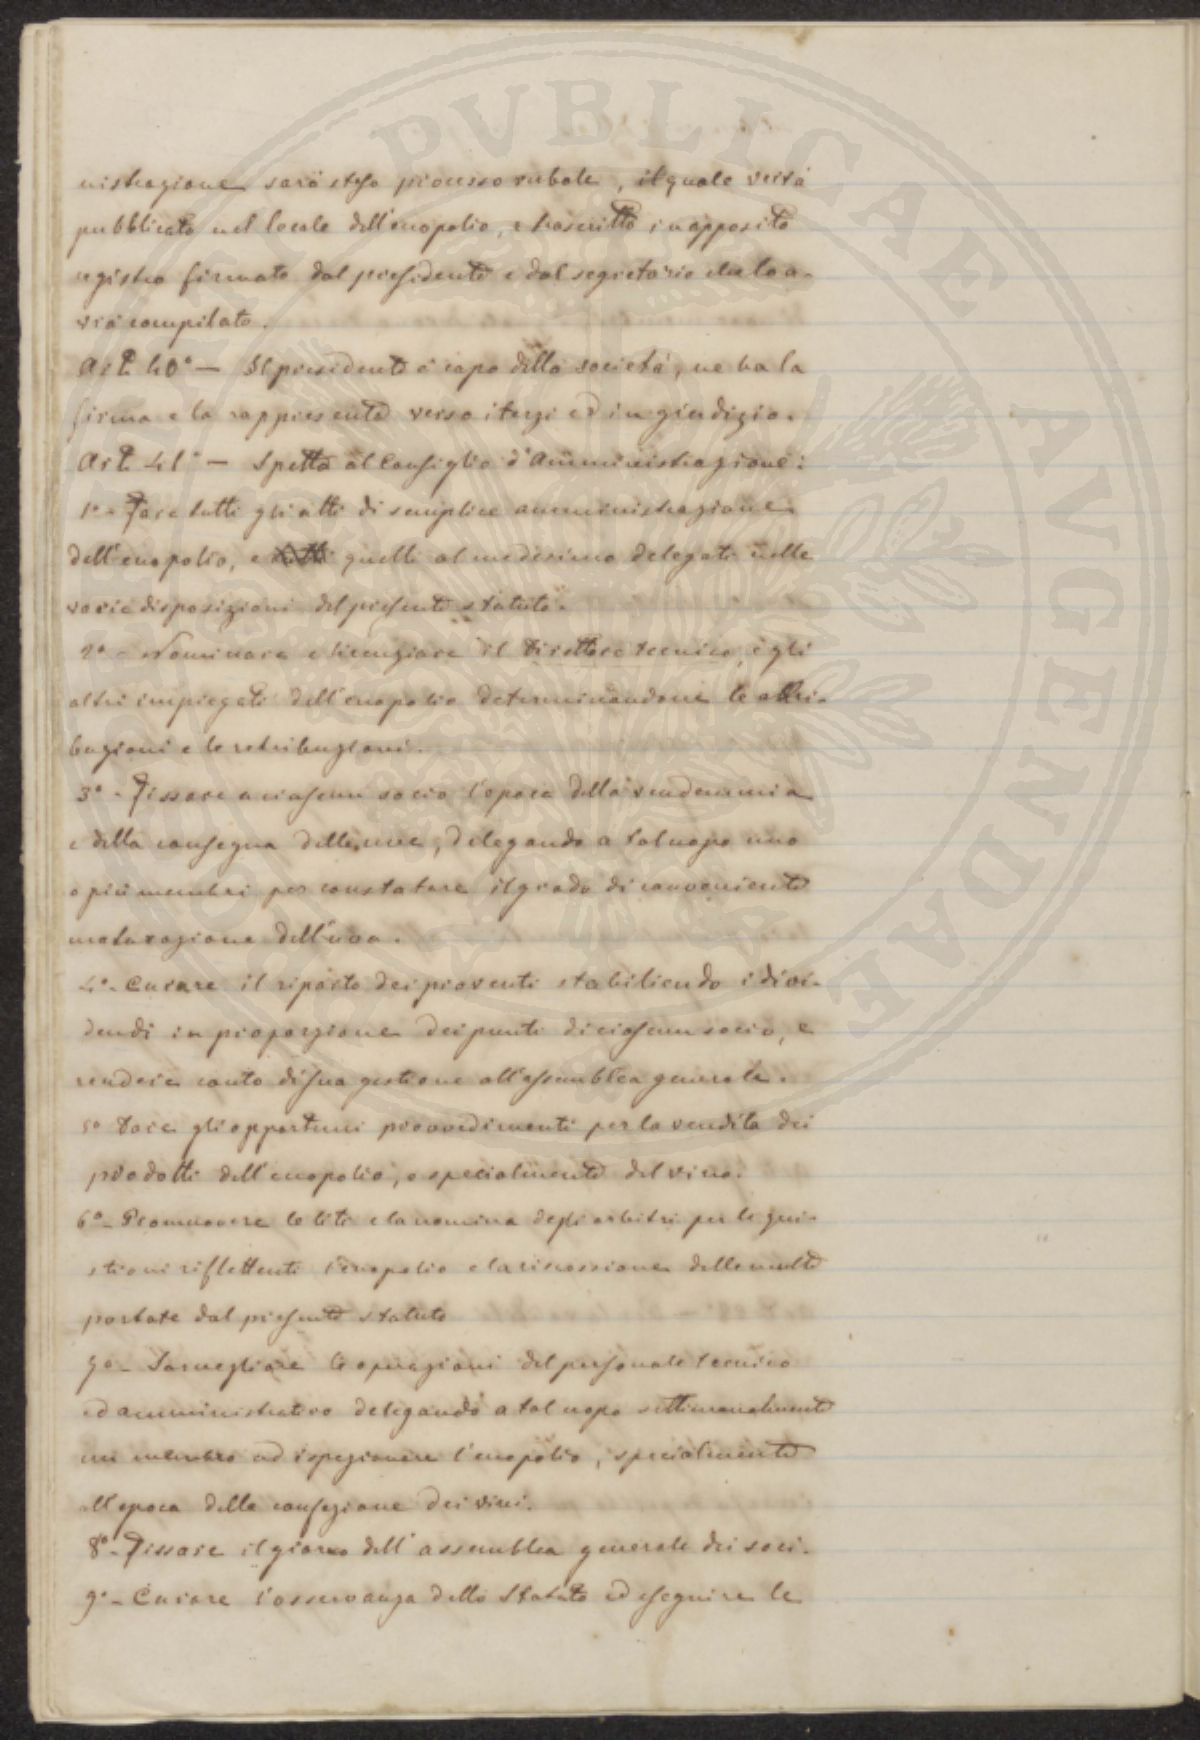 nistrazione sarà steso processo verbale, il quale verrà
pubblicato nel locale dell'enopolio, e trascritto in apposito
registro firmato dal presidente e dal segretario che lo a-
vrà compilato.
Art. 40° — Il presidente è capo della società, ne ha la
firma e la rappresenta verso i terzi ed in giudizio.
Art. 41° — Spetta al Consiglio d'Amministrazione:
1° - Fare tutti gli atti di semplice amministrazione
dell'enopolio, e quelli al medesimo delegati nelle
varie disposizioni del presente statuto.
2° - Nominare e licenziare il Direttore tecnico, e gli
altri impiegati dell'enopolio determinandone le attri-
buzioni e le retribuzioni.
3° - Fissare a ciascun socio l'epoca della vendemmia
e della consegna delle uve, delegando a tal uopo uno
o più membri per constatare il grado di conveniente
maturazione dell'uva.
4° - Curare il riparto dei proventi stabilendo i divi-
dendi in proporzione dei punti di ciascun socio, e
rendere conto di sua gestione all'assemblea generale.
5° Dare gli opportuni provvedimenti per la vendita dei
prodotti dell'enopolio, e specialmente del vino.
6° - Promuovere le liti e la nomina degli arbitri per le qui-
stioni riflettenti l'enopolio e la riscossione delle multe
portate dal presente statuto
7° - Sorvegliare le operazioni del personale tecnico
ed amministrativo delegando a tal uopo settimanalmente
un membro ad ispezionare l'enopolio, specialmente
all'epoca della confezione dei vini.
8° - Fissare il giorno dell'assemblea generale dei soci.
9° - Curare l'osservanza dello Statuto ed eseguire le
PVBLICAE AVGENDAE